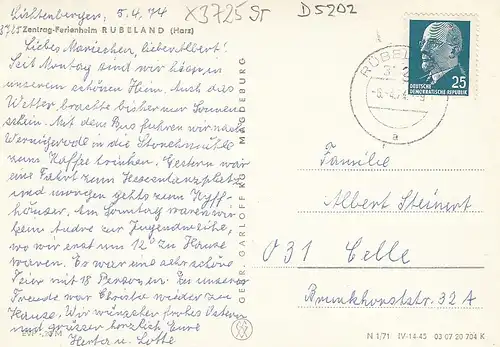 Lichtenbergen, 5.4.74
X3725 Sr
D5202
3725 Zentrag-Ferienheim RÜBELAND (Harz)
Liebes Mariechen, lieber Albert!
Seit Montag sind wir hier in
unserem schönen Heim. Auch das
Wetter brachte bisher nur Sonnen-
schein. Mit dem Bus fuhren wir nach
Wernigerode in die Storchmühle
zum Kaffee trinken. Gestern war
eine Fahrt zum Hexentanzplatz
und morgen gehts zum Kyff-
häuser. Am Sonntag waren wir
beim Andre zur Jugendweihe,
wo wir erst um 12° zu Hause
waren. Es war eine sehr schöne
Feier mit 18 Personen. Zu unserer
Freude war Christa wieder zu
Hause. Wir wünschen frohe Ostern
und grüssen herzlich Eure
Herta u. Lotte
GEBR. GARLOFF KG MAGDEBURG
25
DEUTSCHE
DEMOKRATISCHE REPUBLIK
RÜBEL
-8.-4.74-9
a
Familie
Albert Steinert
031 Celle
Brunkhorststr. 32 A
N 1/71 IV-14-45 03 07 20 704 K